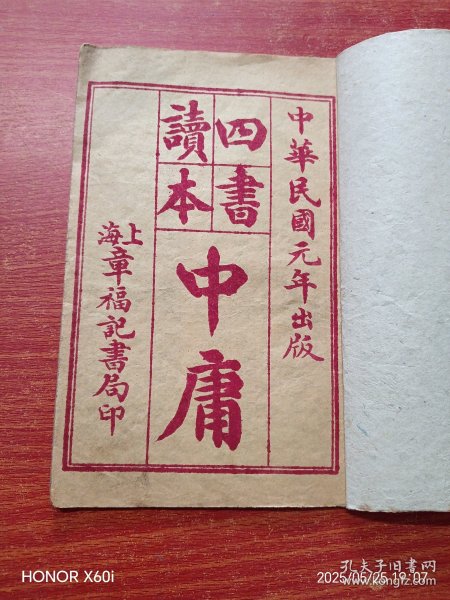 中華民國元年出版
四書
讀本
中庸
上海章福記書局印
HONOR X60i
孔夫子旧书网
2025/05/25 19:07